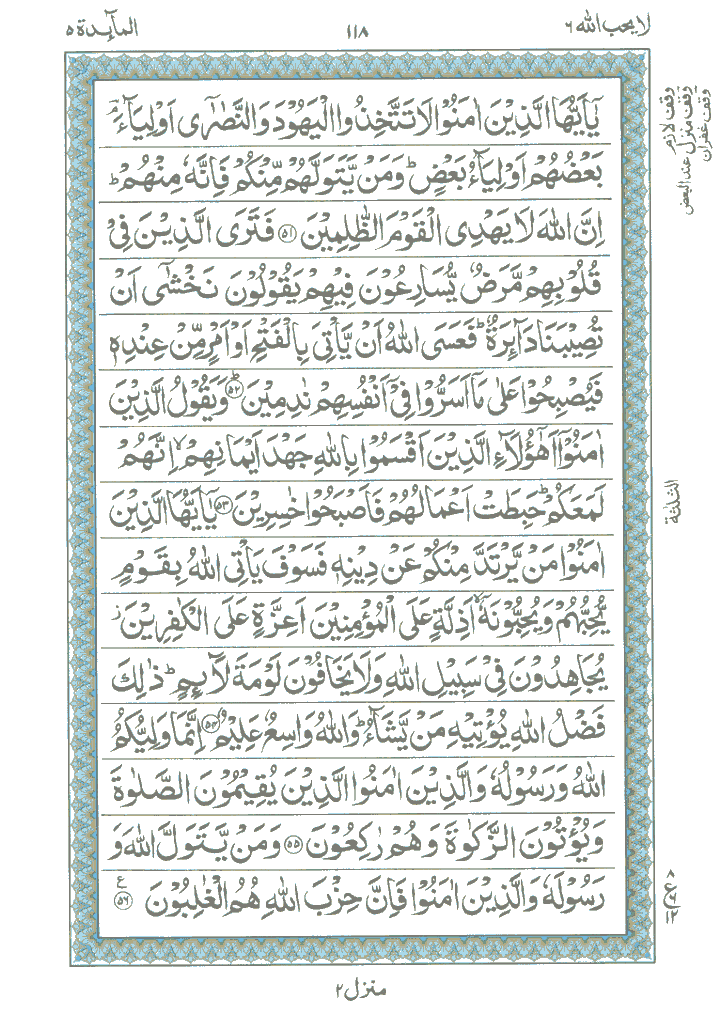 لا یحب اللہ ۶
۱۱۸
المآىِٕدة ۵
یٰۤاَیُّهَا الَّذِیْنَ اٰمَنُوْا لَا تَتَّخِذُوا الْیَهُوْدَ وَ النَّصٰرٰۤى اَوْلِیَآءَ ۘؔ
بَعْضُهُمْ اَوْلِیَآءُ بَعْضٍؕ وَ مَنْ یَّتَوَلَّهُمْ مِّنْكُمْ فَاِنَّهٗ مِنْهُمْؕ
اِنَّ اللّٰهَ لَا یَهْدِی الْقَوْمَ الظّٰلِمِیْنَ ﴿۵۱﴾ فَتَرَى الَّذِیْنَ فِیْ
قُلُوْبِهِمْ مَّرَضٌ یُّسَارِعُوْنَ فِیْهِمْ یَقُوْلُوْنَ نَخْشٰۤى اَنْ
تُصِیْبَنَا دَآىِٕرَةٌؕ فَعَسَى اللّٰهُ اَنْ یَّاْتِیَ بِالْفَتْحِ اَوْ اَمْرٍ مِّنْ عِنْدِهٖ
فَیُصْبِحُوْا عَلٰى مَاۤ اَسَرُّوْا فِیْۤ اَنْفُسِهِمْ نٰدِمِیْنَؕ ﴿۵۲﴾ وَ یَقُوْلُ الَّذِیْنَ
اٰمَنُوْۤا اَهٰۤؤُلَآءِ الَّذِیْنَ اَقْسَمُوْا بِاللّٰهِ جَهْدَ اَیْمَانِهِمْۙ اِنَّهُمْ
لَمَعَكُمْؕ حَبِطَتْ اَعْمَالُهُمْ فَاَصْبَحُوْا خٰسِرِیْنَ ﴿۵۳﴾ یٰۤاَیُّهَا الَّذِیْنَ
اٰمَنُوْا مَنْ یَّرْتَدَّ مِنْكُمْ عَنْ دِیْنِهٖ فَسَوْفَ یَاْتِی اللّٰهُ بِقَوْمٍ
یُّحِبُّهُمْ وَ یُحِبُّوْنَهٗۤۙ اَذِلَّةٍ عَلَى الْمُؤْمِنِیْنَ اَعِزَّةٍ عَلَى الْكٰفِرِیْنَ٘
یُجَاهِدُوْنَ فِیْ سَبِیْلِ اللّٰهِ وَ لَا یَخَافُوْنَ لَوْمَةَ لَآىِٕمٍؕ ذٰلِكَ
فَضْلُ اللّٰهِ یُؤْتِیْهِ مَنْ یَّشَآءُؕ وَ اللّٰهُ وَاسِعٌ عَلِیْمٌ ﴿۵۴﴾ اِنَّمَا وَلِیُّكُمُ
اللّٰهُ وَ رَسُوْلُهٗ وَ الَّذِیْنَ اٰمَنُوا الَّذِیْنَ یُقِیْمُوْنَ الصَّلٰوةَ
وَ یُؤْتُوْنَ الزَّكٰوةَ وَ هُمْ رٰكِعُوْنَ ﴿۵۵﴾ وَ مَنْ یَّتَوَلَّ اللّٰهَ وَ
رَسُوْلَهٗ وَ الَّذِیْنَ اٰمَنُوْا فَاِنَّ حِزْبَ اللّٰهِ هُمُ الْغٰلِبُوْنَ ﴿۵۶﴾ ع
وقف لازم
وقف منزل عند البعض
وقف غفران
الثلثة
ع ۸
۱۲
منزل ۲